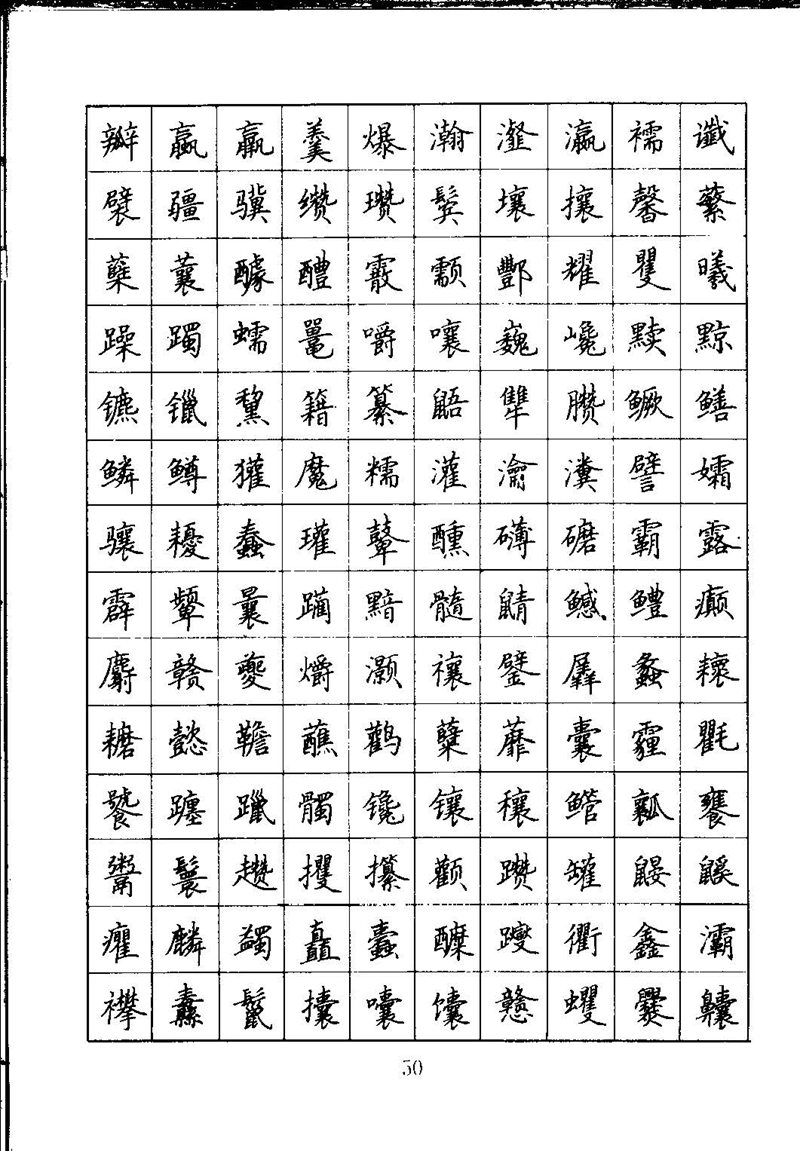 瓣蠃羸羹爆瀚瀣瀛襦谶
襞疆骥缵瓒鬓壤攘馨蘩
蘖蘘醵醴霰颥酆耀矍曦
躁躅蠕鼍嚼嚷巍巉黩黥
镳镴黧籍纂鼯犨臜鳜鳝
鳞鳟獾魔糯灌瀹瀵譬孀
骧耰蠢瓘鼙醺礴礳霸露
霹颦曩躏黯髓鼱鳡鳢癫
麝赣夔爝灏禳鐾羼蠡耲
耱懿韂蘸鹳糵蘼囊霾氍
饕躔躐髑镵镶穰鳤瓤饔
鬻鬟趱攫攥颧躜罐鼹鼷
癯麟蠲矗蠹醾躞衢鑫灞
襻纛鬣攮囔馕戆蠼爨齉
50